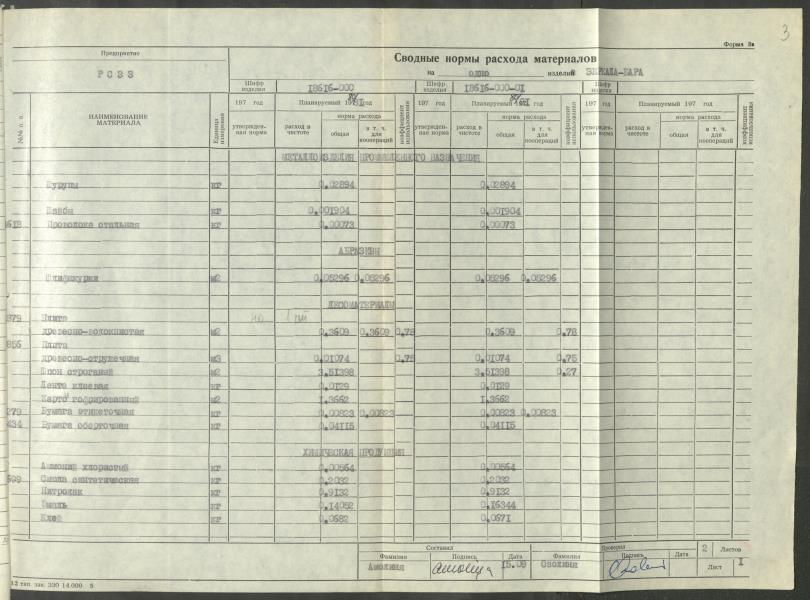 3
Форма 3в
Предприятие
РСЗЗ
Сводные нормы расхода материалов
на одно изделие ЗЕРКАЛА-БАРА
Шифр изделия 18616-000 Шифр изделия 18616-000-01 Шифр изделия
№№ п. п. НАИМЕНОВАНИЕ МАТЕРИАЛА Единица измерения
197 год Планируемый 1981 год коэффициент использования 197 год Планируемый 1981 год коэффициент использования 197 год Планируемый 197 год коэффициент использования
утвержденная норма расход в чистоте норма расхода общая в т. ч. для коопераций утвержденная норма расход в чистоте норма расхода общая в т. ч. для коопераций утвержденная норма расход в чистоте норма расхода общая в т. ч. для коопераций
МЕТАЛЛОИЗДЕЛИЯ ПРОМЫШЛЕННОГО НАЗНАЧЕНИЯ
Шурупы кг 0.02894 0.02894
Шайбы кг 0.001904 0.001904
Проволока стальная кг 0.00073 0.00073
АБРАЗИВЫ
Шлифшкурки м2 0.05296 0.05296 0.05296 0.05296
ЛЕСОМАТЕРИАЛЫ
879 Плита
древесно-волокнистая м2 0.3609 0.3609 0.78 0.3609 0.78
856 Плита
древесно-стружечная м3 0.01074 0.75 0.01074 0.75
Шпон строганый м2 3.51398 3.51398 0.27
Лента клеевая кг 0.0129 0.0129
Картон гофрированный м2 1.3662 1.3662
279 Бумага этикеточная кг 0.00823 0.00823 0.00823 0.00823
434 Бумага оберточная кг 0.04115 0.04115
ХИМИЧЕСКАЯ ПРОДУКЦИЯ
Аммоний хлористый кг 0.00564 0.00564
599 Смола синтетическая кг 0.2032 0.2032
Нитролак кг 0.9132 0.9132
Эмаль кг 0.14052 0.16344
Клей кг 0.0682 0.0671
Составил Проверил 2 Листов
Фамилия Подпись Дата Фамилия Подпись Дата Лист 1
Амолиня 15.09 Озолиня
12 тип. зак. 330 14.000 5